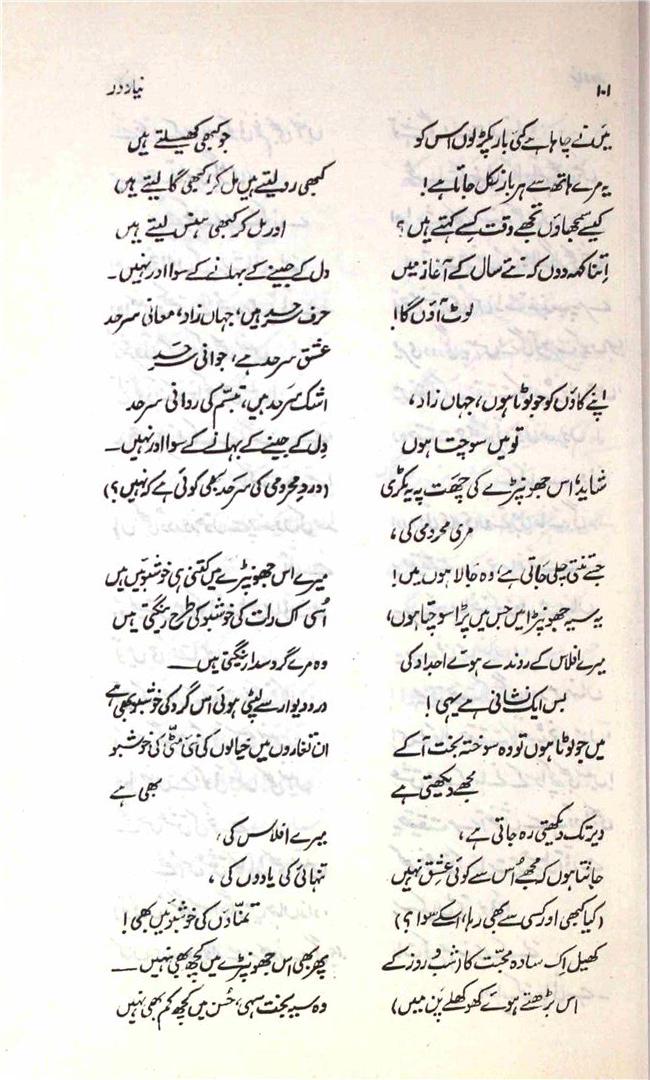 ۱۰۱
نیا دور
میں نے چاہا ہے کئی بار پکڑ لوں اس کو
یہ مرے ہاتھ سے ہر بار نکل جاتا ہے!
کیسے سمجھاؤں تجھے وقت کسے کہتے ہیں؟
اِتنا کہہ دوں کہ نئے سال کے آغاز میں
لوٹ آؤں گا!
اپنے گاؤں کو جو لوٹا ہوں، جہاں زاد،
تو میں سوچتا ہوں
شاید اس جھونپڑے کی چھت پہ یہ مکڑی
مری محرومی کی،
جسے تنتی چلی جاتی ہے، وہ جالا ہوں میں!
یہ سیہ جھونپڑا میں جس میں پڑا سوچتا ہوں،
میرے افلاس کے روندے ہوئے اجداد کی
بس ایک نشانی ہے یہی!
میں جو لوٹا ہوں تو وہ سوختہ بخت آ کے
مجھے دیکھتی ہے
دیر تک دیکھتی رہ جاتی ہے،
جانتا ہوں کہ مجھے اُس سے کوئی عشق نہیں
(کیا کبھی اور کسی سے بھی رہا، اسکے سوا؟)
کھیل اک سادہ محبّت کا (شب و روز کے
اس بڑھتے ہوئے کھوکھلے پن میں)
جو کبھی کھیلتے ہیں
کبھی رو لیتے ہیں مل کر، کبھی گا لیتے ہیں
اور مل کر کبھی ہنس لیتے ہیں
دل کے جینے کے بہانے کے سوا اور نہیں۔
حرف سرحد ہیں، جہاں زاد، معانی سرحد
عشق سرحد ہے، جوانی سرحد
اشک سرحد ہیں، تبسّم کی روانی سرحد
دِل کے جینے کے بہانے کے سوا اور نہیں۔
(دردِ محرومی کی سرحد بھی کوئی ہے کہ نہیں؟)
میرے اس جھونپڑے میں کتنی ہی خوشبوئیں ہیں
اُسی اک رات کی خوشبو کی طرح رینگتی ہیں
وہ مرے گرد سدا رینگتی ہیں۔
در و دیوار سے لپٹی ہوئی اس گرد کی خوشبو بھی ہے
ان تغاروں میں خیالوں کی نئی مٹّی کی خوشبو
بھی ہے
میرے افلاس کی،
تنہائی کی یادوں کی،
تمنّاؤں کی خوشبوئیں بھی!
پھر بھی اس جھونپڑے میں کچھ بھی نہیں۔
وہ سیہ بخت سہی، حُسن میں کچھ کم بھی نہیں